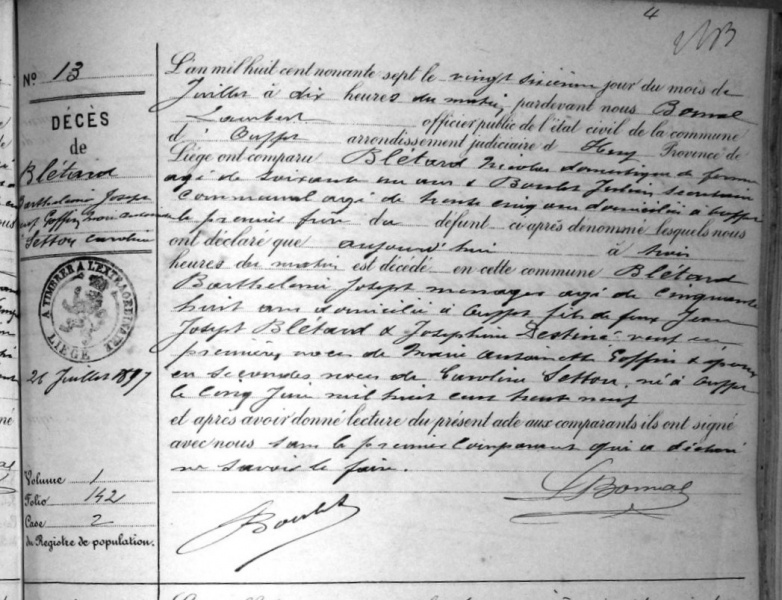 4
N° 13
DÉCÈS
de
Blétard
Barthelemi Joseph
veuf Goffin Marie Antoinette
Setton Caroline
A TIMBRER A L'EXTRAORDINAIRE
LIÉGE
26 Juillet 1897
Volume 1
Folio 142
Case 2
du Registre de population.
L'an mil huit cent nonante sept le vingt sixième jour du mois de
Juillet à dix heures du matin, pardevant nous Bomal
Lambert officier public de l'état civil de la commune
d' Ouffet arrondissement judiciaire d Huy Province de
Liége ont comparu Blétard Nicolas domestique de ferme
agé de soixante un ans & Boulet Justin secrétaire
communal agé de trente cinq ans domiciliés à Ouffet
le premier frère du défunt ci-après dénommé lesquels nous
ont déclaré que aujourd'hui à trois
heures du matin est décédé en cette commune Blétard
Barthelemi Joseph menager agé de cinquante
huit ans domicilié à Ouffet fils de feux Jean
Joseph Blétard & Josephine Destiné veuf en
premières noces de Marie Antoinette Goffin & époux
en secondes noces de Caroline Setton, né à Ouffet
le cinq Juin mil huit cent trente neuf
et après avoir donné lecture du présent acte aux comparants ils ont signé
avec nous sauf le premier comparant qui a déclaré
ne savoir le faire.
LBomal
JBoulet